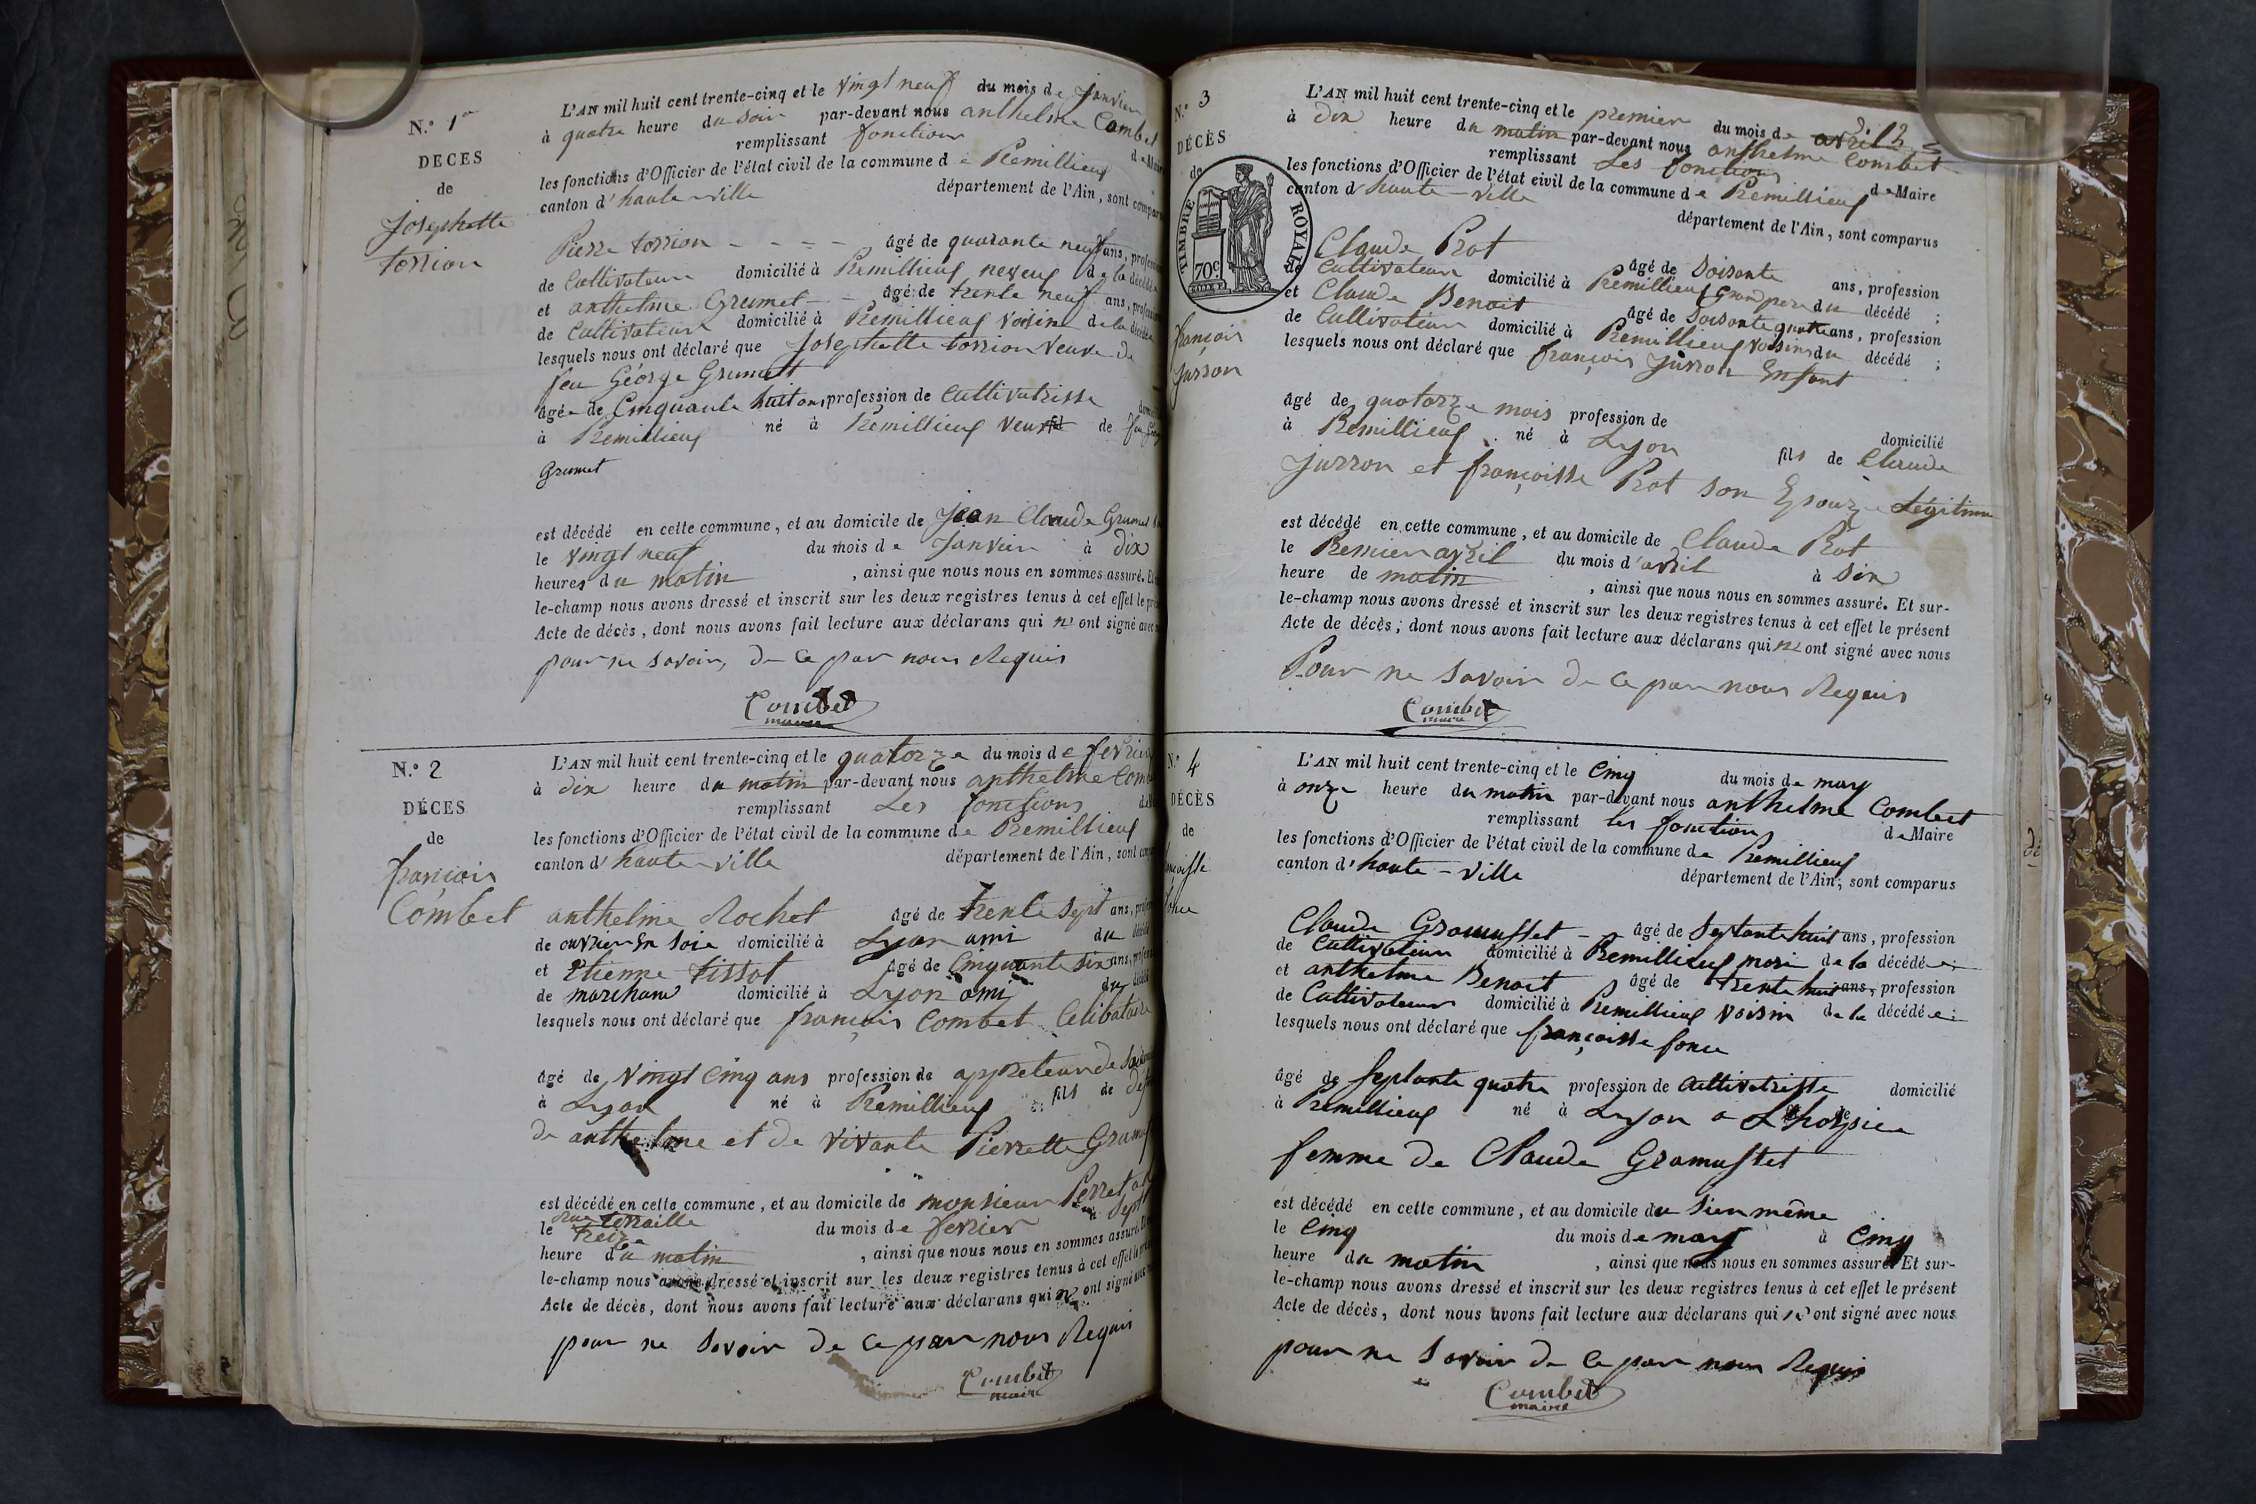 N.° 1er
DECES
de
Josephette
torrion
L'AN mil huit cent trente-cinq et le vingt neuf du mois de janvier
à quatre heure du soir par-devant nous anthelme Combet
remplissant fonction de Maire
les fonctions d'Officier de l'état civil de la commune de Premillieu
canton d'haute-ville département de l'Ain, sont comparus
Pierre torrion âgé de quarante neuf ans, profession
de Cultivateur domicilié à Premillieu neveu de la décédée
et anthelme Grumet âgé de trente neuf ans, profession
de Cultivateur domicilié à Premillieu voisin de la décédée
lesquels nous ont déclaré que Josephette torrion veuve de
feu Géorge Grumet
âgée de Cinquante huit ans, profession de Cultivatrisse
à Premillieu né à Premillieu veuve de feu
Grumet
est décédé en cette commune, et au domicile de jean Claude Grumet
le vingt neuf du mois de Janvier à dix
heures du matin , ainsi que nous nous en sommes assuré. Et
le-champ nous avons dressé et inscrit sur les deux registres tenus à cet effet le
Acte de décès, dont nous avons fait lecture aux déclarans qui n' ont signé avec
pour ne savoir, de ce par nous Requis
Combet
maire
N.° 2
DÉCES
de
françois
Combet
L'AN mil huit cent trente-cinq et le quatorze du mois de fevrier
à dix heure du matin par-devant nous anthelme Combet
remplissant Les fonctions
les fonctions d'Officier de l'état civil de la commune de Premillieu
canton d'haute-ville département de l'Ain, sont
anthelme Rochet âgé de trente sept ans,
de ouvrier en soie domicilié à Lyon ami du décédé
et Etienne tissot âgé de Cinquante six ans,
de marchand domicilié à Lyon ami du décédé
lesquels nous ont déclaré que françois Combet Célibataire
âgé de vingt Cinq ans profession de appreteur de
à Lyon né à Premillieu fils de
de anthelme et de vivante Pierrette
est décédé en cette commune, et au domicile de monsieur Perret
rue terraille
le treize du mois de fevrier à sept
heure du matin , ainsi que nous nous en sommes assuré.
le-champ nous avons dressé et inscrit sur les deux registres tenus à cet effet le
Acte de décès, dont nous avons fait lecture aux déclarans qui n' ont signé
pour ne savoir de ce par nous Requis
Combet
maire
N.° 3
DÉCÈS
de
TIMBRE ROYAL
70c
françois
Jurron
L'AN mil huit cent trente-cinq et le premier du mois de avril
à dix heure du matin par-devant nous anthelme Combet
remplissant Les fonctions de Maire
les fonctions d'Officier de l'état civil de la commune de Premillieu
canton d'haute-ville département de l'Ain, sont comparus
Claude Prot âgé de soisante ans, profession
de Cultivateur domicilié à Premillieu Grand pere du décédé ;
et Claude Benoit âgé de soisante quatre ans, profession
de Cultivateur domicilié à Premillieu voisin du décédé ;
lesquels nous ont déclaré que françois Jurron Enfant
âgé de quatorze mois profession de domicilié
à Premillieu né à Lyon fils de Claude
Jurron et françoisse Prot son Epouze Légitime
est décédé en cette commune, et au domicile de Claude Prot
le Premier avril du mois d'avril à six
heure de matin , ainsi que nous nous en sommes assuré. Et sur-
le-champ nous avons dressé et inscrit sur les deux registres tenus à cet effet le présent
Acte de décès; dont nous avons fait lecture aux déclarans qui n' ont signé avec nous
Pour ne savoir de ce par nous Requis
Combet
maire
N.° 4
DÉCÈS
de
L'AN mil huit cent trente-cinq et le Cinq du mois de may
à onze heure du matin par-devant nous anthelme Combet
remplissant les fonctions de Maire
les fonctions d'Officier de l'état civil de la commune de Premillieu
canton d'haute-ville département de l'Ain, sont comparus
Claude Gramusset âgé de Septante huit ans, profession
de Cultivateur domicilié à Premillieu mari de la décédée;
et anthelme Benoit âgé de trente huit ans, profession
de Cultivateur domicilié à Premillieu voisin de la décédée;
lesquels nous ont déclaré que françoisse fonce
âgé de Septante quatre profession de Cultivatrisse domicilié
à Premillieu né à Lyon a
femme de Claude Gramusset
est décédé en cette commune, et au domicile du sien même
le Cinq du mois de may à Cinq
heure du matin , ainsi que nous nous en sommes assuré. Et sur-
le-champ nous avons dressé et inscrit sur les deux registres tenus à cet effet le présent
Acte de décès, dont nous avons fait lecture aux déclarans qui n' ont signé avec nous
pour ne savoir de ce par nous Requis
Combet
maire